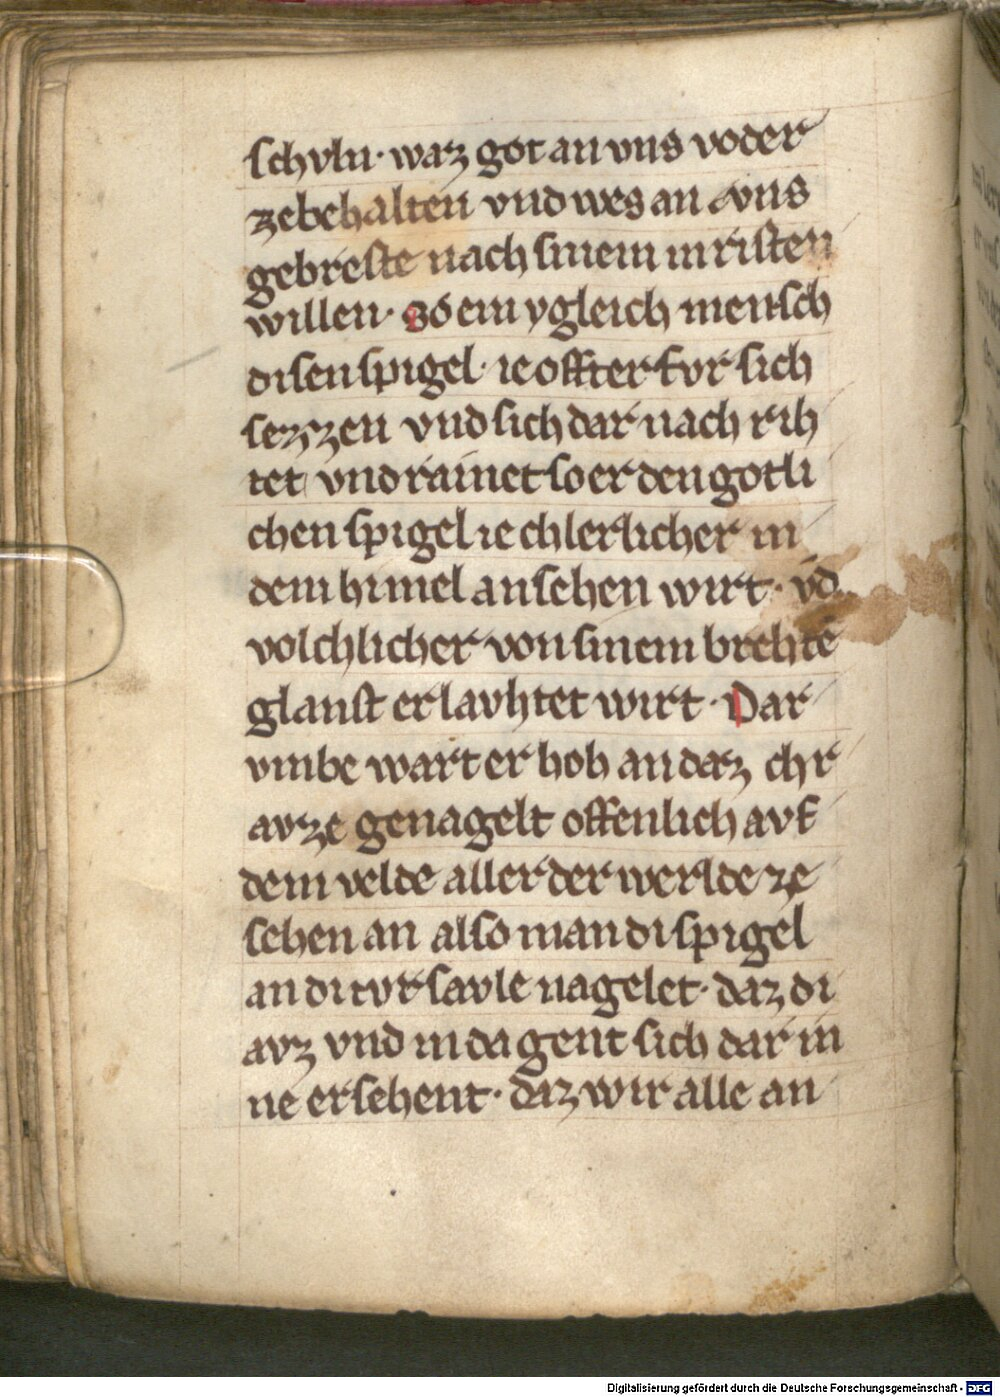 schvln · waz got an vns voder
zebehalten vnd wes an vns
gebreste nach sinem inristen
willen · So ein ygleich mensch
disen spigel · ie offter fvr sich
sezzen vnd sich dar nach rih
tet vnd rainet so er den gotli
chen spigel ie chlerlicher in
dem himel an sehen wirt · vd
volchlicher von sinem brehte
glanst erlavhtet wirt · Dar
vmbe wart er hoh an daz chr
avze genagelt offenlich avf
dem velde aller der werlde ze
sehen an also man di spigel
an di tvr savle nagelet · daz di
avz vnd in da gent sich dar in
ne ersehent · daz wir alle an
Digitalisierung gefördert durch die Deutsche Forschungsgemeinschaft - DFG